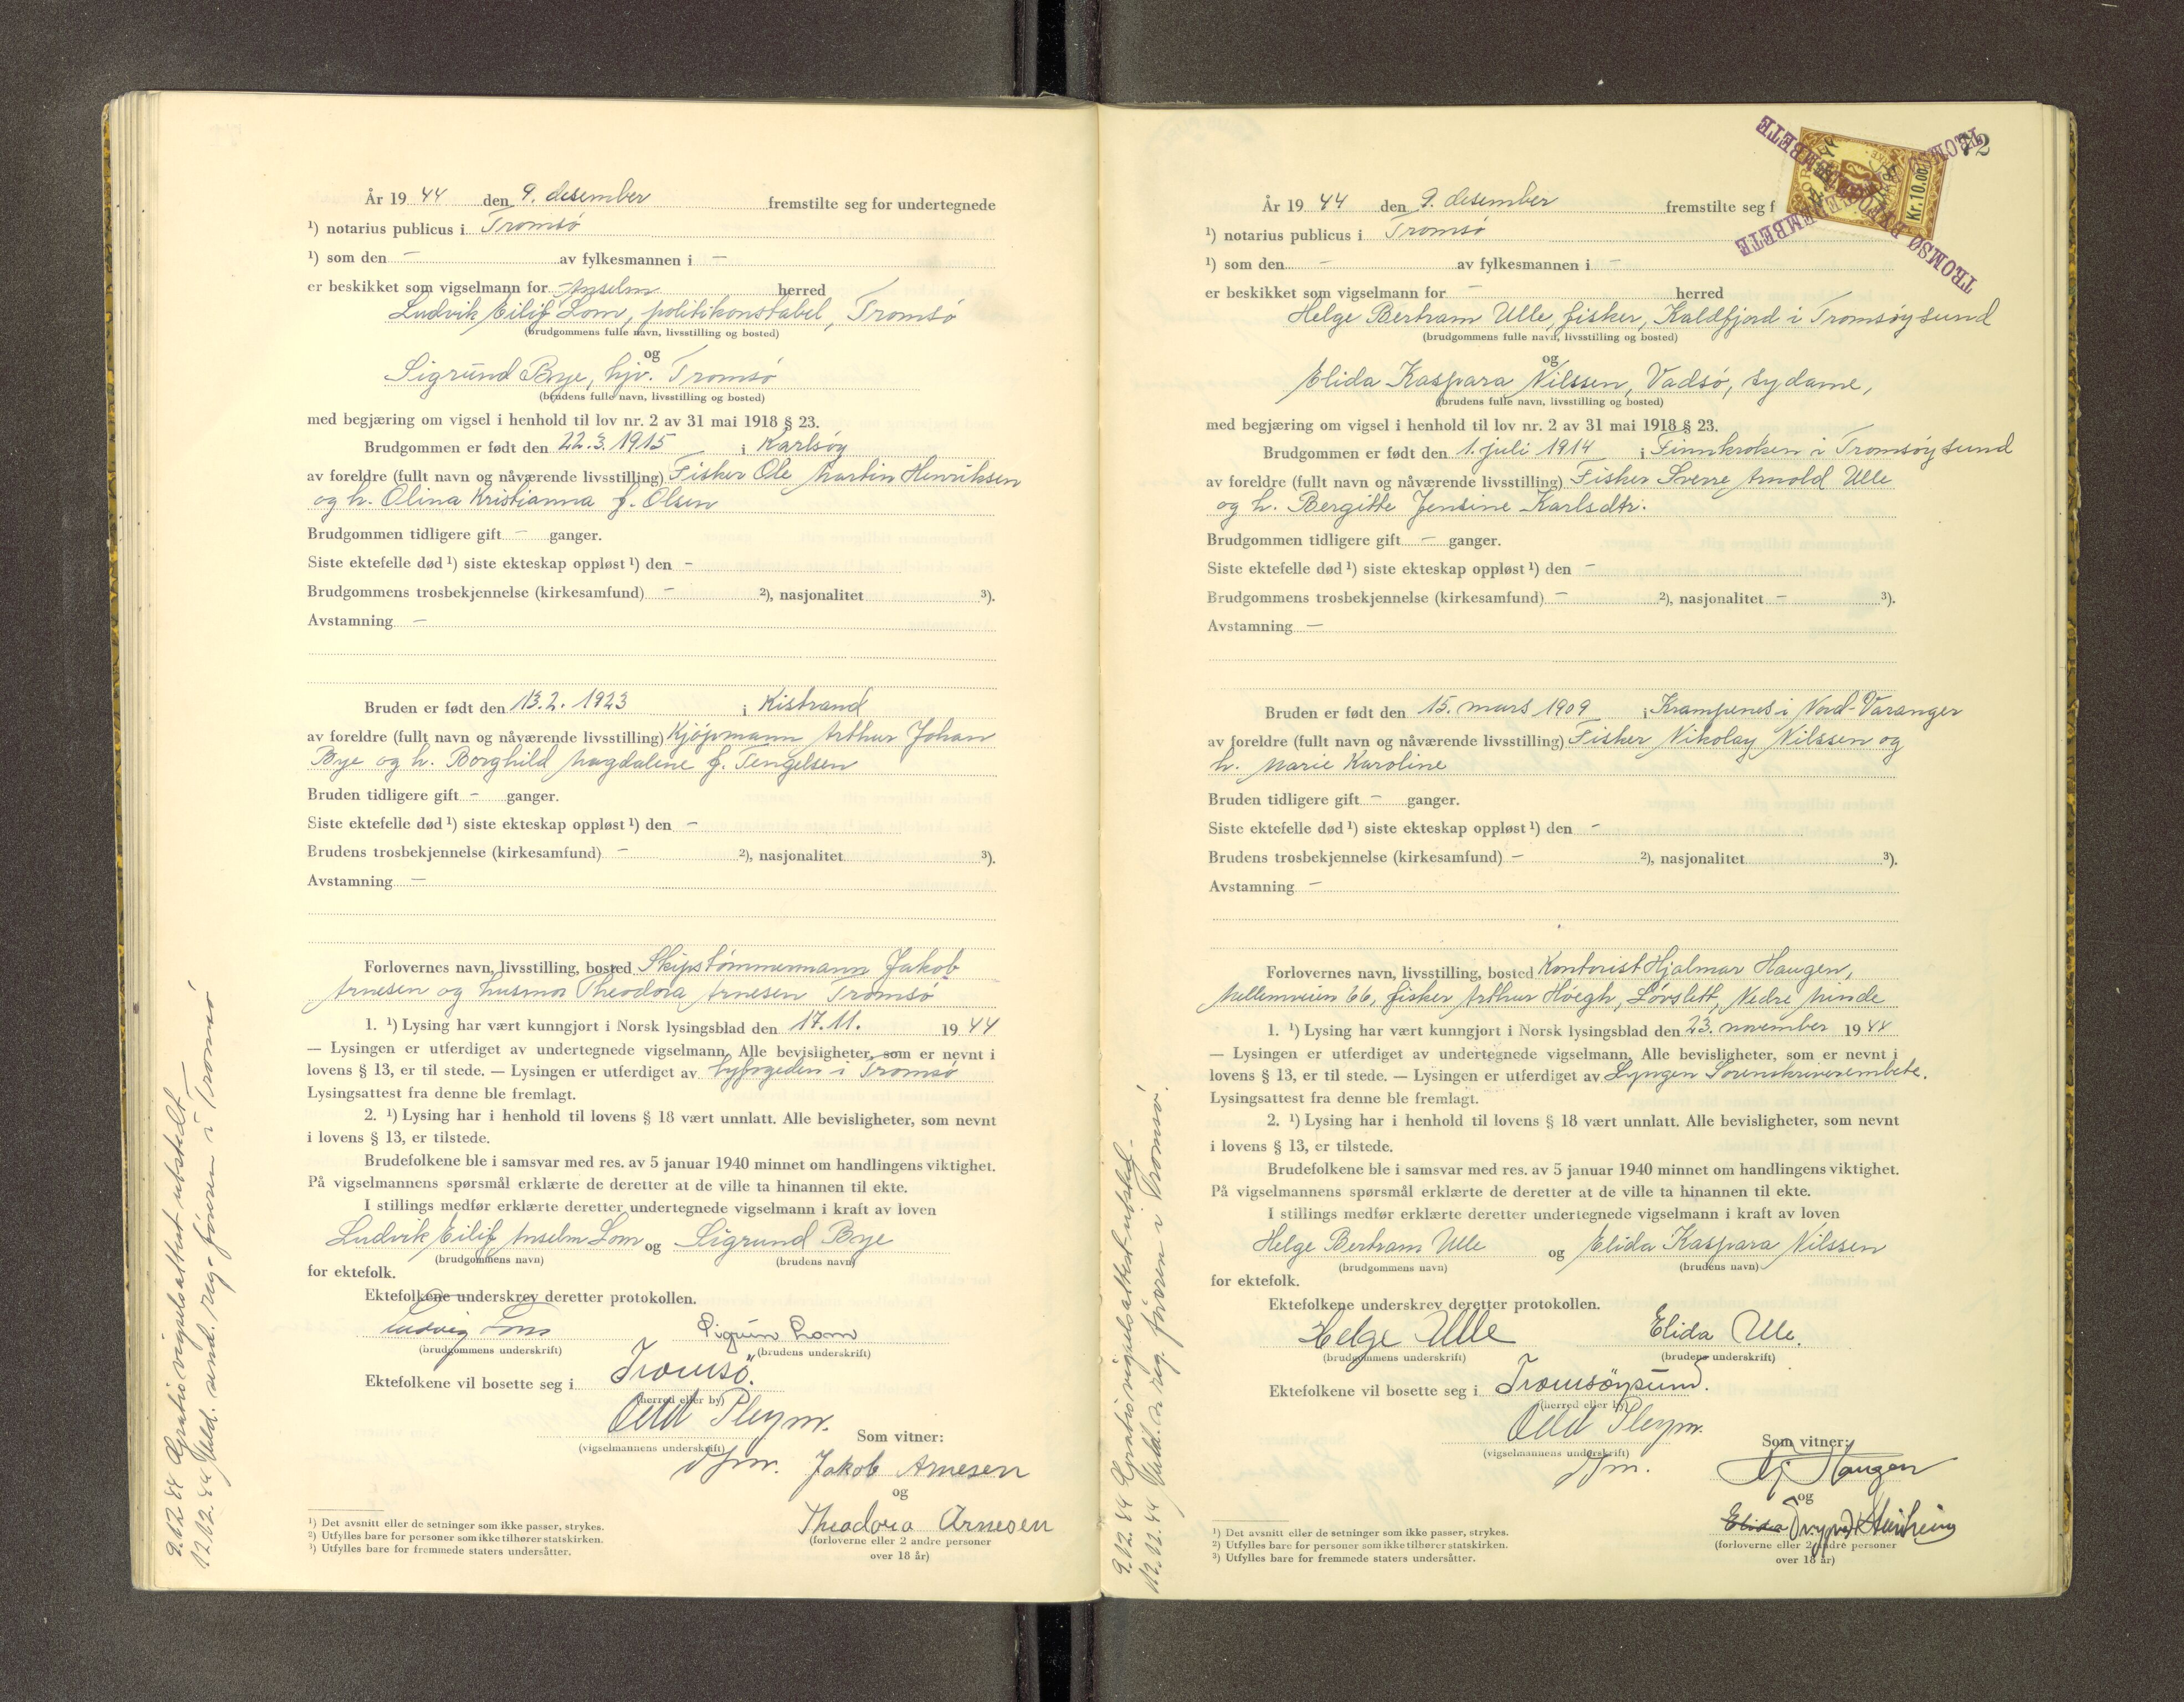 År 19 44 den 9. desember fremstilte seg for undertegnede
¹) notarius publicus i Tromsø
¹) som den - av fylkesmannen i -
er beskikket som vigselmann for - Anselm herred
Ludvik Eilif Lom, politikonstabel, Tromsø
(brudgommens fulle navn, livsstilling og bosted)
og
Sigrund Bye, hjv. Tromsø
(brudens fulle navn, livsstilling og bosted)
med begjæring om vigsel i henhold til lov nr. 2 av 31 mai 1918 § 23.
Brudgommen er født den 22.3.1915 i Karlsøy
av foreldre (fullt navn og nåværende livsstilling) Fisker Ole Martin Henriksen
og h. Olina Kristianna f. Olsen
Brudgommen tidligere gift - ganger.
Siste ektefelle død ¹) siste ekteskap oppløst ¹) den -
Brudgommens trosbekjennelse (kirkesamfund) - ²), nasjonalitet ³).
Avstamning -
Bruden er født den 13.2.1923 i Kistrand
av foreldre (fullt navn og nåværende livsstilling) Kjøpmann Arthur Johan
Bye og h. Borghild Magdalene f. Tengelsen
Bruden tidligere gift - ganger.
Siste ektefelle død ¹) siste ekteskap oppløst ¹) den -
Brudens trosbekjennelse (kirkesamfund) - ²), nasjonalitet ³).
Avstamning -
Forlovernes navn, livsstilling, bosted Skipstømmermann Jakob
Arnesen og husmor Theodora Arnesen Tromsø
1. ¹) Lysing har vært kunngjort i Norsk lysingsblad den 17.11. 19 44
— Lysingen er utferdiget av undertegnede vigselmann. Alle bevisligheter, som er nevnt i
lovens § 13, er til stede. — Lysingen er utferdiget av byfogeden i Tromsø
Lysingsattest fra denne ble fremlagt.
2. ¹) Lysing har i henhold til lovens § 18 vært unnlatt. Alle bevisligheter, som nevnt
i lovens § 13, er tilstede.
Brudefolkene ble i samsvar med res. av 5 januar 1940 minnet om handlingens viktighet.
På vigselmannens spørsmål erklærte de deretter at de ville ta hinannen til ekte.
I stillings medfør erklærte deretter undertegnede vigselmann i kraft av loven
Ludvik Eilif Anselm Lom og Sigrund Bye
(brudgommens navn) (brudens navn)
for ektefolk.
Ektefolkene underskrev deretter protokollen.
Ludvig Lom Sigrun Lom
(brudgommens underskrift) (brudens underskrift)
Ektefolkene vil bosette seg i Tromsø.
(herred eller by)
Odd Pleym.
(vigselmannens underskrift) Som vitner:
Jakob Arnesen
og
Theodora Arnesen
(forloverne eller 2 andre personer
over 18 år)
¹) Det avsnitt eller de setninger som ikke passer, strykes.
²) Utfylles bare for personer som ikke tilhører statskirken.
³) Utfylles bare for fremmede staters undersåtter.
9.12.44 Gratis vigselsattest utstedt
12.12.44 Meld. send. reg. føreren i Tromsø
72
TROMSØ EMBETE
Kr. 10.00
År 19 44 den 9. desember fremstilte seg f
¹) notarius publicus i Tromsø
¹) som den - av fylkesmannen i -
er beskikket som vigselmann for - herred
Helge Bertram Ulle, fisker, Kaldfjord i Tromsøysund
(brudgommens fulle navn, livsstilling og bosted)
og
Elida Kaspara Nilssen, Vadsø, sydame,
(brudens fulle navn, livsstilling og bosted)
med begjæring om vigsel i henhold til lov nr. 2 av 31 mai 1918 § 23.
Brudgommen er født den 1. juli 1914 i Finnkroken i Tromsøysund
av foreldre (fullt navn og nåværende livsstilling) Fisker Sverre Arnold Ulle
og h. Bergitte Jensine Karlsdtr.
Brudgommen tidligere gift - ganger.
Siste ektefelle død ¹) siste ekteskap oppløst ¹) den -
Brudgommens trosbekjennelse (kirkesamfund) - ²), nasjonalitet - ³).
Avstamning -
Bruden er født den 15. mars 1909 i Krampenes i Nord-Varanger
av foreldre (fullt navn og nåværende livsstilling) Fisker Nikolay Nilssen og
h. Marie Karoline
Bruden tidligere gift - ganger.
Siste ektefelle død ¹) siste ekteskap oppløst ¹) den -
Brudens trosbekjennelse (kirkesamfund) - ²), nasjonalitet ³).
Avstamning -
Forlovernes navn, livsstilling, bosted Kontorist Hjalmar Haugen,
Mellemveien 66, fisker Arthur Høegh, Løvslett, Nedre
1. ¹) Lysing har vært kunngjort i Norsk lysingsblad den 23. november 19 44
— Lysingen er utferdiget av undertegnede vigselmann. Alle bevisligheter, som er nevnt i
lovens § 13, er til stede. — Lysingen er utferdiget av Lyngen Sorenskriverembete.
Lysingsattest fra denne ble fremlagt.
2. ¹) Lysing har i henhold til lovens § 18 vært unnlatt. Alle bevisligheter, som nevnt
i lovens § 13, er tilstede.
Brudefolkene ble i samsvar med res. av 5 januar 1940 minnet om handlingens viktighet.
På vigselmannens spørsmål erklærte de deretter at de ville ta hinannen til ekte.
I stillings medfør erklærte deretter undertegnede vigselmann i kraft av loven
Helge Bertram Ulle og Elida Kaspara Nilssen
(brudgommens navn) (brudens navn)
for ektefolk.
Ektefolkene underskrev deretter protokollen.
Helge Ulle Elida Ulle.
(brudgommens underskrift) (brudens underskrift)
Ektefolkene vil bosette seg i Tromsöysund.
(herred eller by)
Odd Pleym.
(vigselmannens underskrift) Som vitner:
Hj Haugen
og
Elida
(forloverne eller 2 andre personer
over 18 år)
¹) Det avsnitt eller de setninger som ikke passer, strykes.
²) Utfylles bare for personer som ikke tilhører statskirken.
³) Utfylles bare for fremmede staters undersåtter.
9.12.44 Gratis vigselsattest utsted.
12.12.44 Meld. reg. føreren i Tromsø.